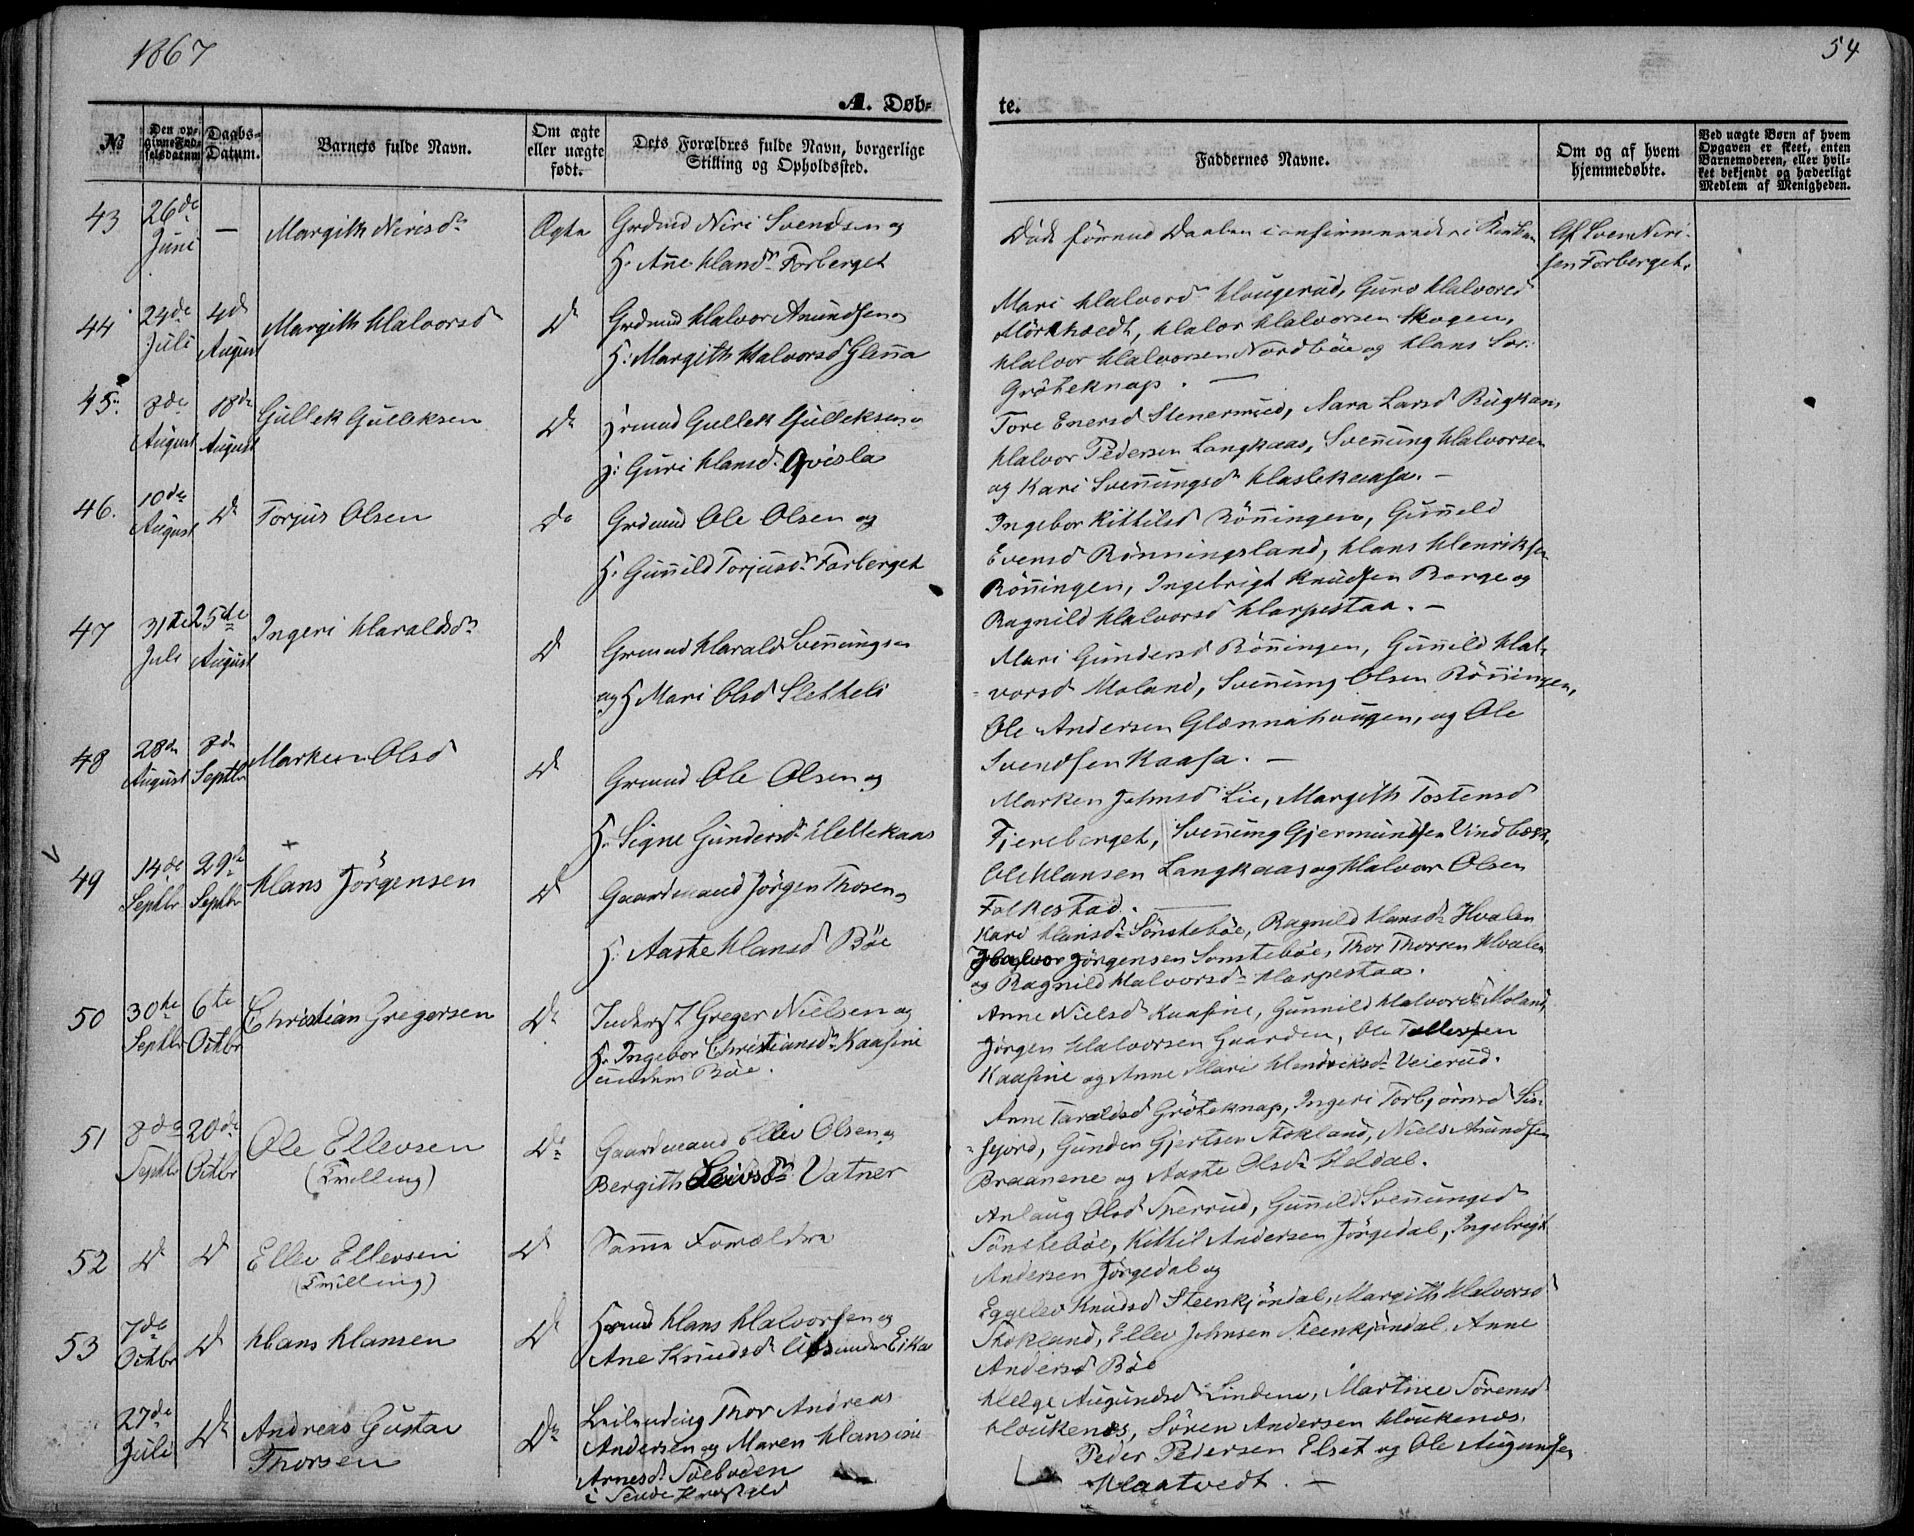 1867
54
A. Døb-
te.
№
Den op-
givne Fød-
selsdatum
Daabs-
Datum.
Barnets fulde Navn.
Om ægte
eller uægte
født.
Dets Forældres fulde Navn, borgerlige
Stilling og Opholdssted.
Faddernes Navne.
Om og af hvem
hjemmedøbte.
Ved uægte Børn af hvem
Opgaven er skeet, enten
Barnemoderen, eller hvil-
ket bekjendt og hæderligt
Medlem af Menigheden.
43
26de
Juni
—
Margith Nirisdr
Ægte
Grdmd Niri Svendsen og
H. Ane Hansdr Forberget
Død førend Daaben confirmeredes i Kirken
Af Sven Niri-
sen Forberget.
44
24de
Juli
4de
August
Margith Halvorsd
Do
Grdmd Halvor Amundsen og
H: Margith Halvorsd Glenna
Mari Halvord Hougerud, Guro Halvorsd
Mörkhvedt, Halvor Halvorsen Skogen,
Halvor Halvorsen Nordböe og Hans Lar.
Gröteknap. —
45.
8de
August
18de
August
Gullek Gulleksen
Do
Hrmnd Gullek Gulleksen og
H: Guri Hansd. Qvisla
Tore Enersd Stenermued, Sara Larsd Bugkaas,
Halvor Pedersen Langkaas, Svenung Halvorsen
og Kari Svenungsdr Haslekaasa. —
46.
10de
August
Do
Torjus Olsen
Do
Grdmnd Ole Olsen og
H. Gunild Torjusdr Forberget
Ingebor Kittilsd Rönningen, Gunnild
Evensd Rønningsland, Hans Henriksen
Rönningen, Ingebrigt Knudsen Borge og
Ragnild Halvorsd Harpestaa. —
47
31te
Juli
25de
August
Ingeri Haraldsdr
Do
Grmnd Harald Svenningsen
og H Mari Olsd Sletteli
Mari Gundersd Rönningen, Gunnild Hal-
vorsd. Moland, Svenung Olsen Rönningen,
Ole Andersen Glænnahougen, og Ole
Svendsen Kaasa. —
48
28de
August
8de
Septbr
Marken Olsd
Do
Grmnd Ole Olsen og
H. Signe Gundersdr Hellekaas
Marken Johnsd Lie, Margith Tostensd
Fjereberget, Svennung Gjermundsen Vindbæk,
Ole Hansen Langkaas og Halvor Olsen
Folkestad. —
49
14de
Septbr
29de
Septbr
Hans Jörgensen
Do
Gaardmand Jörgen Thorsen og
H. Aaste Hansd Böe
Kari Hansdr Sönsteböe, Ragnild Hansdr Hvalen
Halvor Jörgensen Sönsteböe, Thor Thorsen Hvalen
og Ragnild Halvorsdr Harpestaa.
50
30te
Septbr
6te
Octbr
Christian Gregersen
Do
Inderst Greger Nielsen og
H. Ingebor Christiansdr Kaasine
under Böe.
Anne Nielsd Kaasine, Gunnild Halvorsd Moland,
Jörgen Halvorsen Gaarden, Ole Tollefsen
Kaasine og Anne Mari Hendriksdr Veierud.
51
8de
Septbr
20de
Octbr
Ole Ellevsen
(Tvilling)
Do
Gaardmand Ellev Olsen og
Bergith Leivsdr Vatner
Anne Taraldsd Gröteknap, Ingeri Torbjörnsd Sis-
sejord, Gunder Gjertsen Stokland, Niels Amundsen
Braanene og Aaste Olsdr Heldal.
52
Do
Do
Ellev Ellevsen
(Tvilling)
Do
Samme Forældre
Anlaug Olsd Sherrud, Gunnild Svenungsd
Sönsteböe, Kittil Andersen Jörgedal, Ingebrigt
Andersen Jörgedal og
53
7de
Octbr
Do
Hans Hansen
Do
Hrmnd Hans Halvorsen og
Ane Knudsd under Eika
Eggelev Knudsd Steenkjöndal, Margith Halvorsd
Stokland, Ellev Johnsen Steenkjöndal, Anne
Andersd Böe
27de
Juli
Do
Andreas Gustav
Thorsen
Do
Leilending Thor Andreas
Andersen og Maren Hansine
Arnesd
i
Helge Augundsd Lindem, Martine Sörensd
Houkenæs, Sören Andersen Houkenæs.
Peder Pedersen Elset og Ole Augundsen
Haatvedt. —